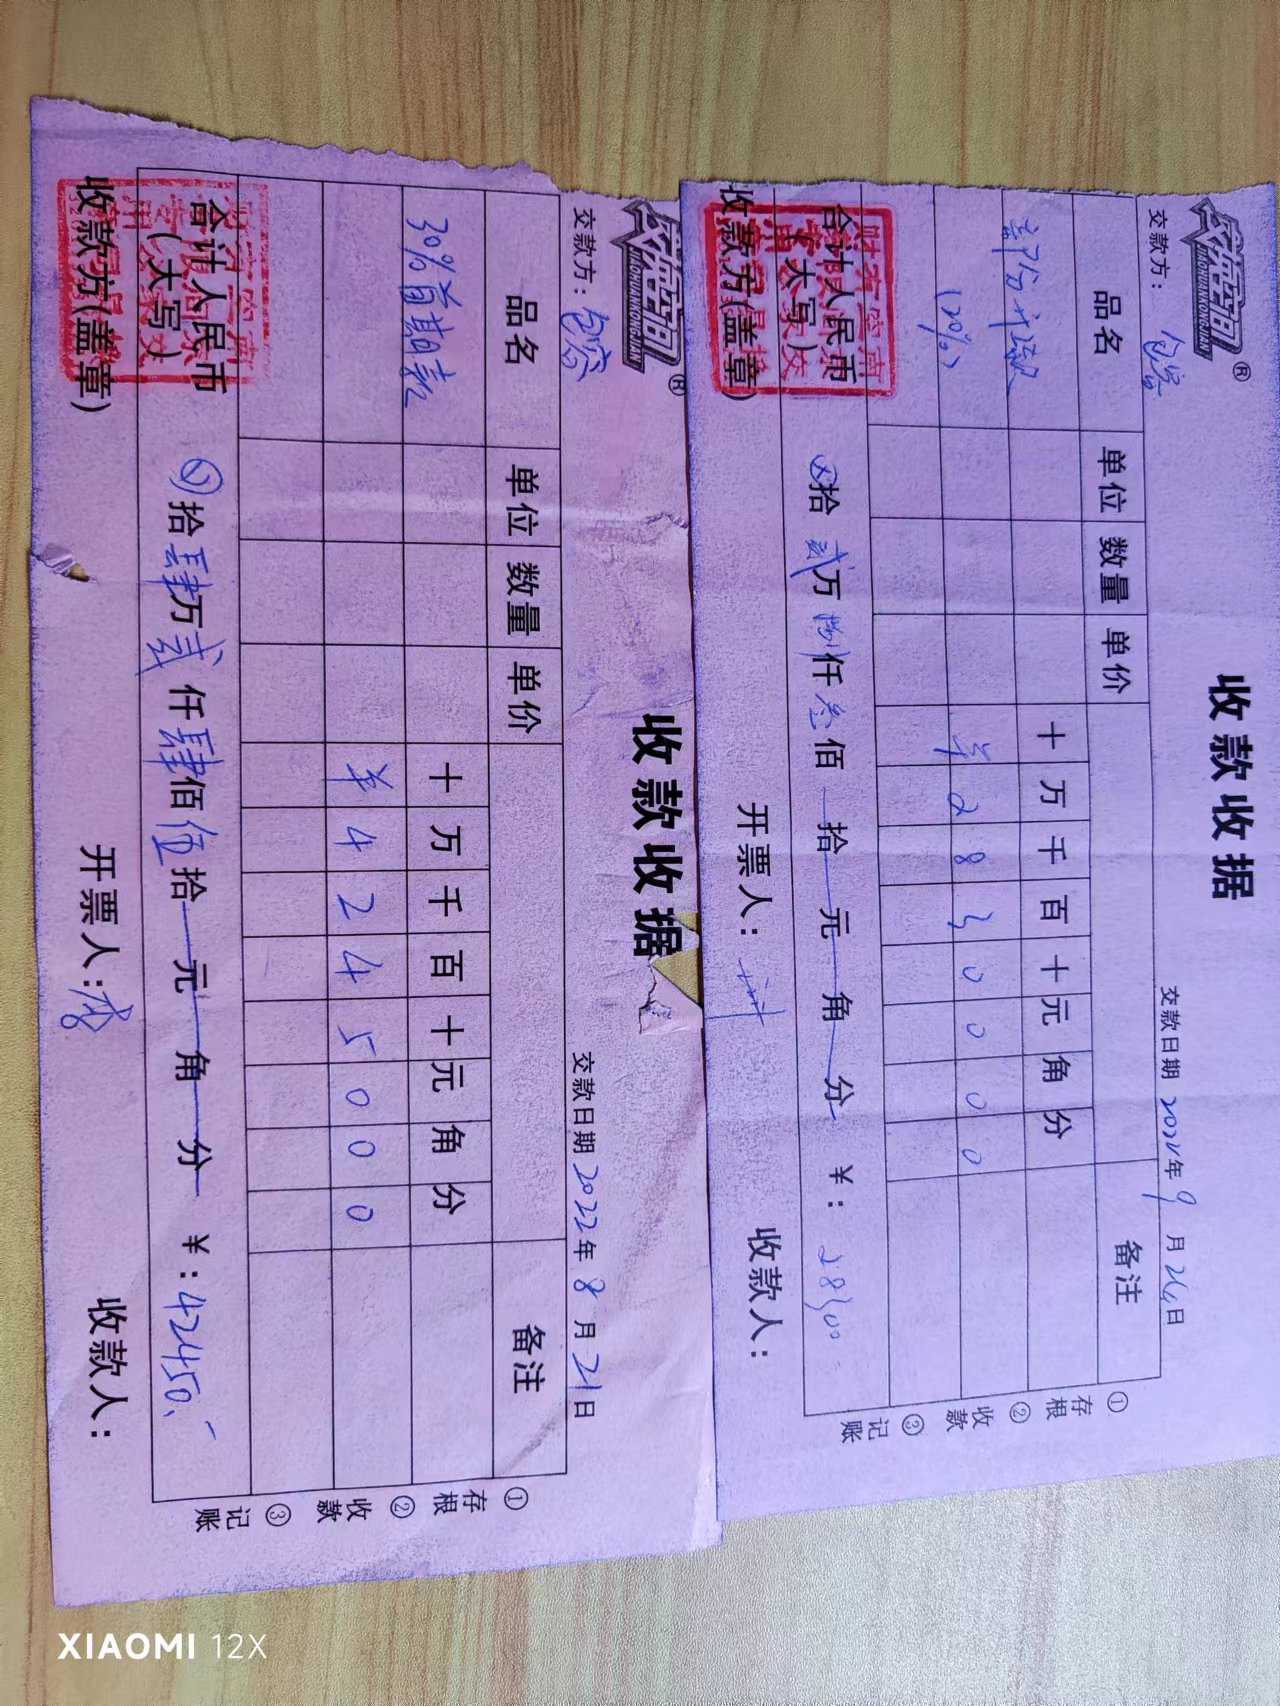 XIAOHUANKONGJIAN
®
收款收据
交款方:
交款日期 2022年 9 月 26日
品名 单位 数量 单价 十 万 千 百 十 元 角 分 备注
部分
(20%) ¥ 2 8 3 0 0 0 0
合计人民币
(大写)
⊗拾 贰万 捌仟 叁佰 拾 元 角 分 ¥: 28300
收款方(盖章) 开票人: 收款人:
①存根 ②收款 ③记账
XIAOHUANKONGJIAN
®
收款收据
交款方:
交款日期 2022年 8 月 21日
品名 单位 数量 单价 十 万 千 百 十 元 角 分 备注
30%首期款
¥ 4 2 4 5 0 0 0
合计人民币
(大写)
⊗拾 肆万 贰仟 肆佰 伍拾 元 角 分 ¥: 42450.-
收款方(盖章) 开票人: 收款人:
①存根 ②收款 ③记账
XIAOMI 12X